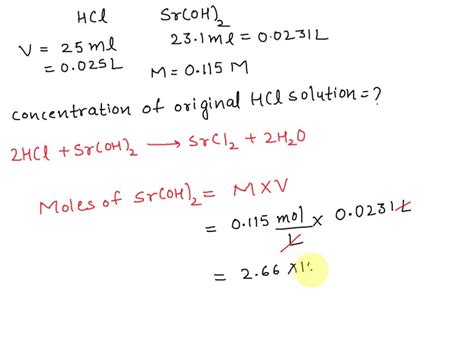 HCl Sr(OH)₂
V = 25 ml 23.1 ml = 0.0231L
= 0.025L M = 0.115 M
concentration of original HCl solution = ?
2HCl + Sr(OH)₂ → SrCl₂ + 2H₂O
Moles of Sr(OH)₂ = M×V
= 0.115 mol/L × 0.0231 L
= 2.66 ×1